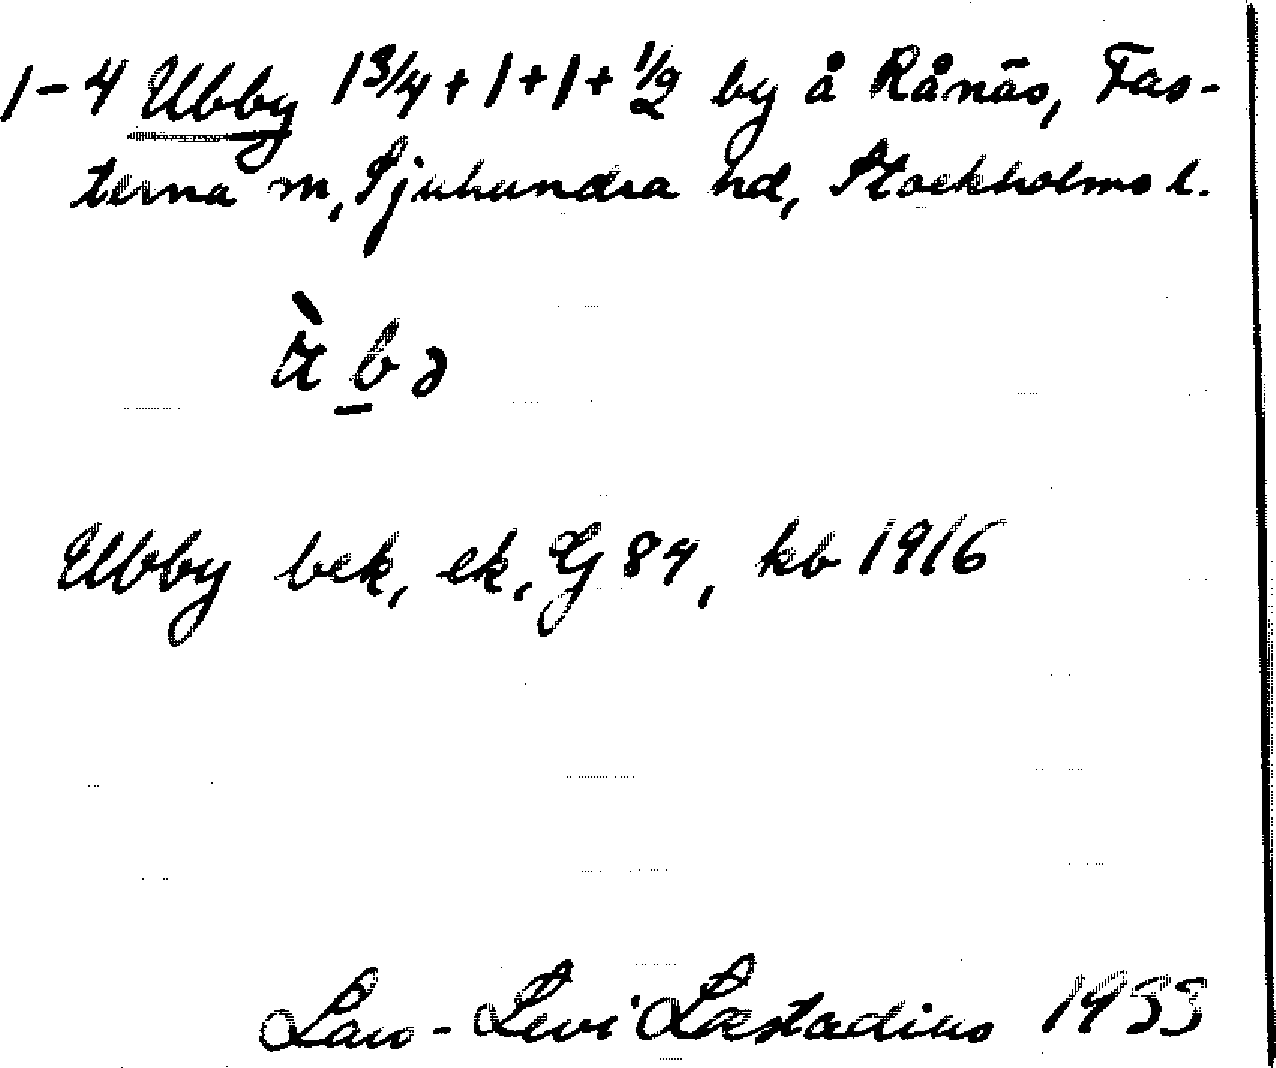 1-4 Ubby 1 3/4 + 1 + 1 + 1/2 by å Rånäs, Fas-
terna sn, Sjuhundra hd, Stockholms l.
ù̀ b̲ ə
Ubby bek, ek, G 84, kb 1916
Lars-Levi Læstadius 1933